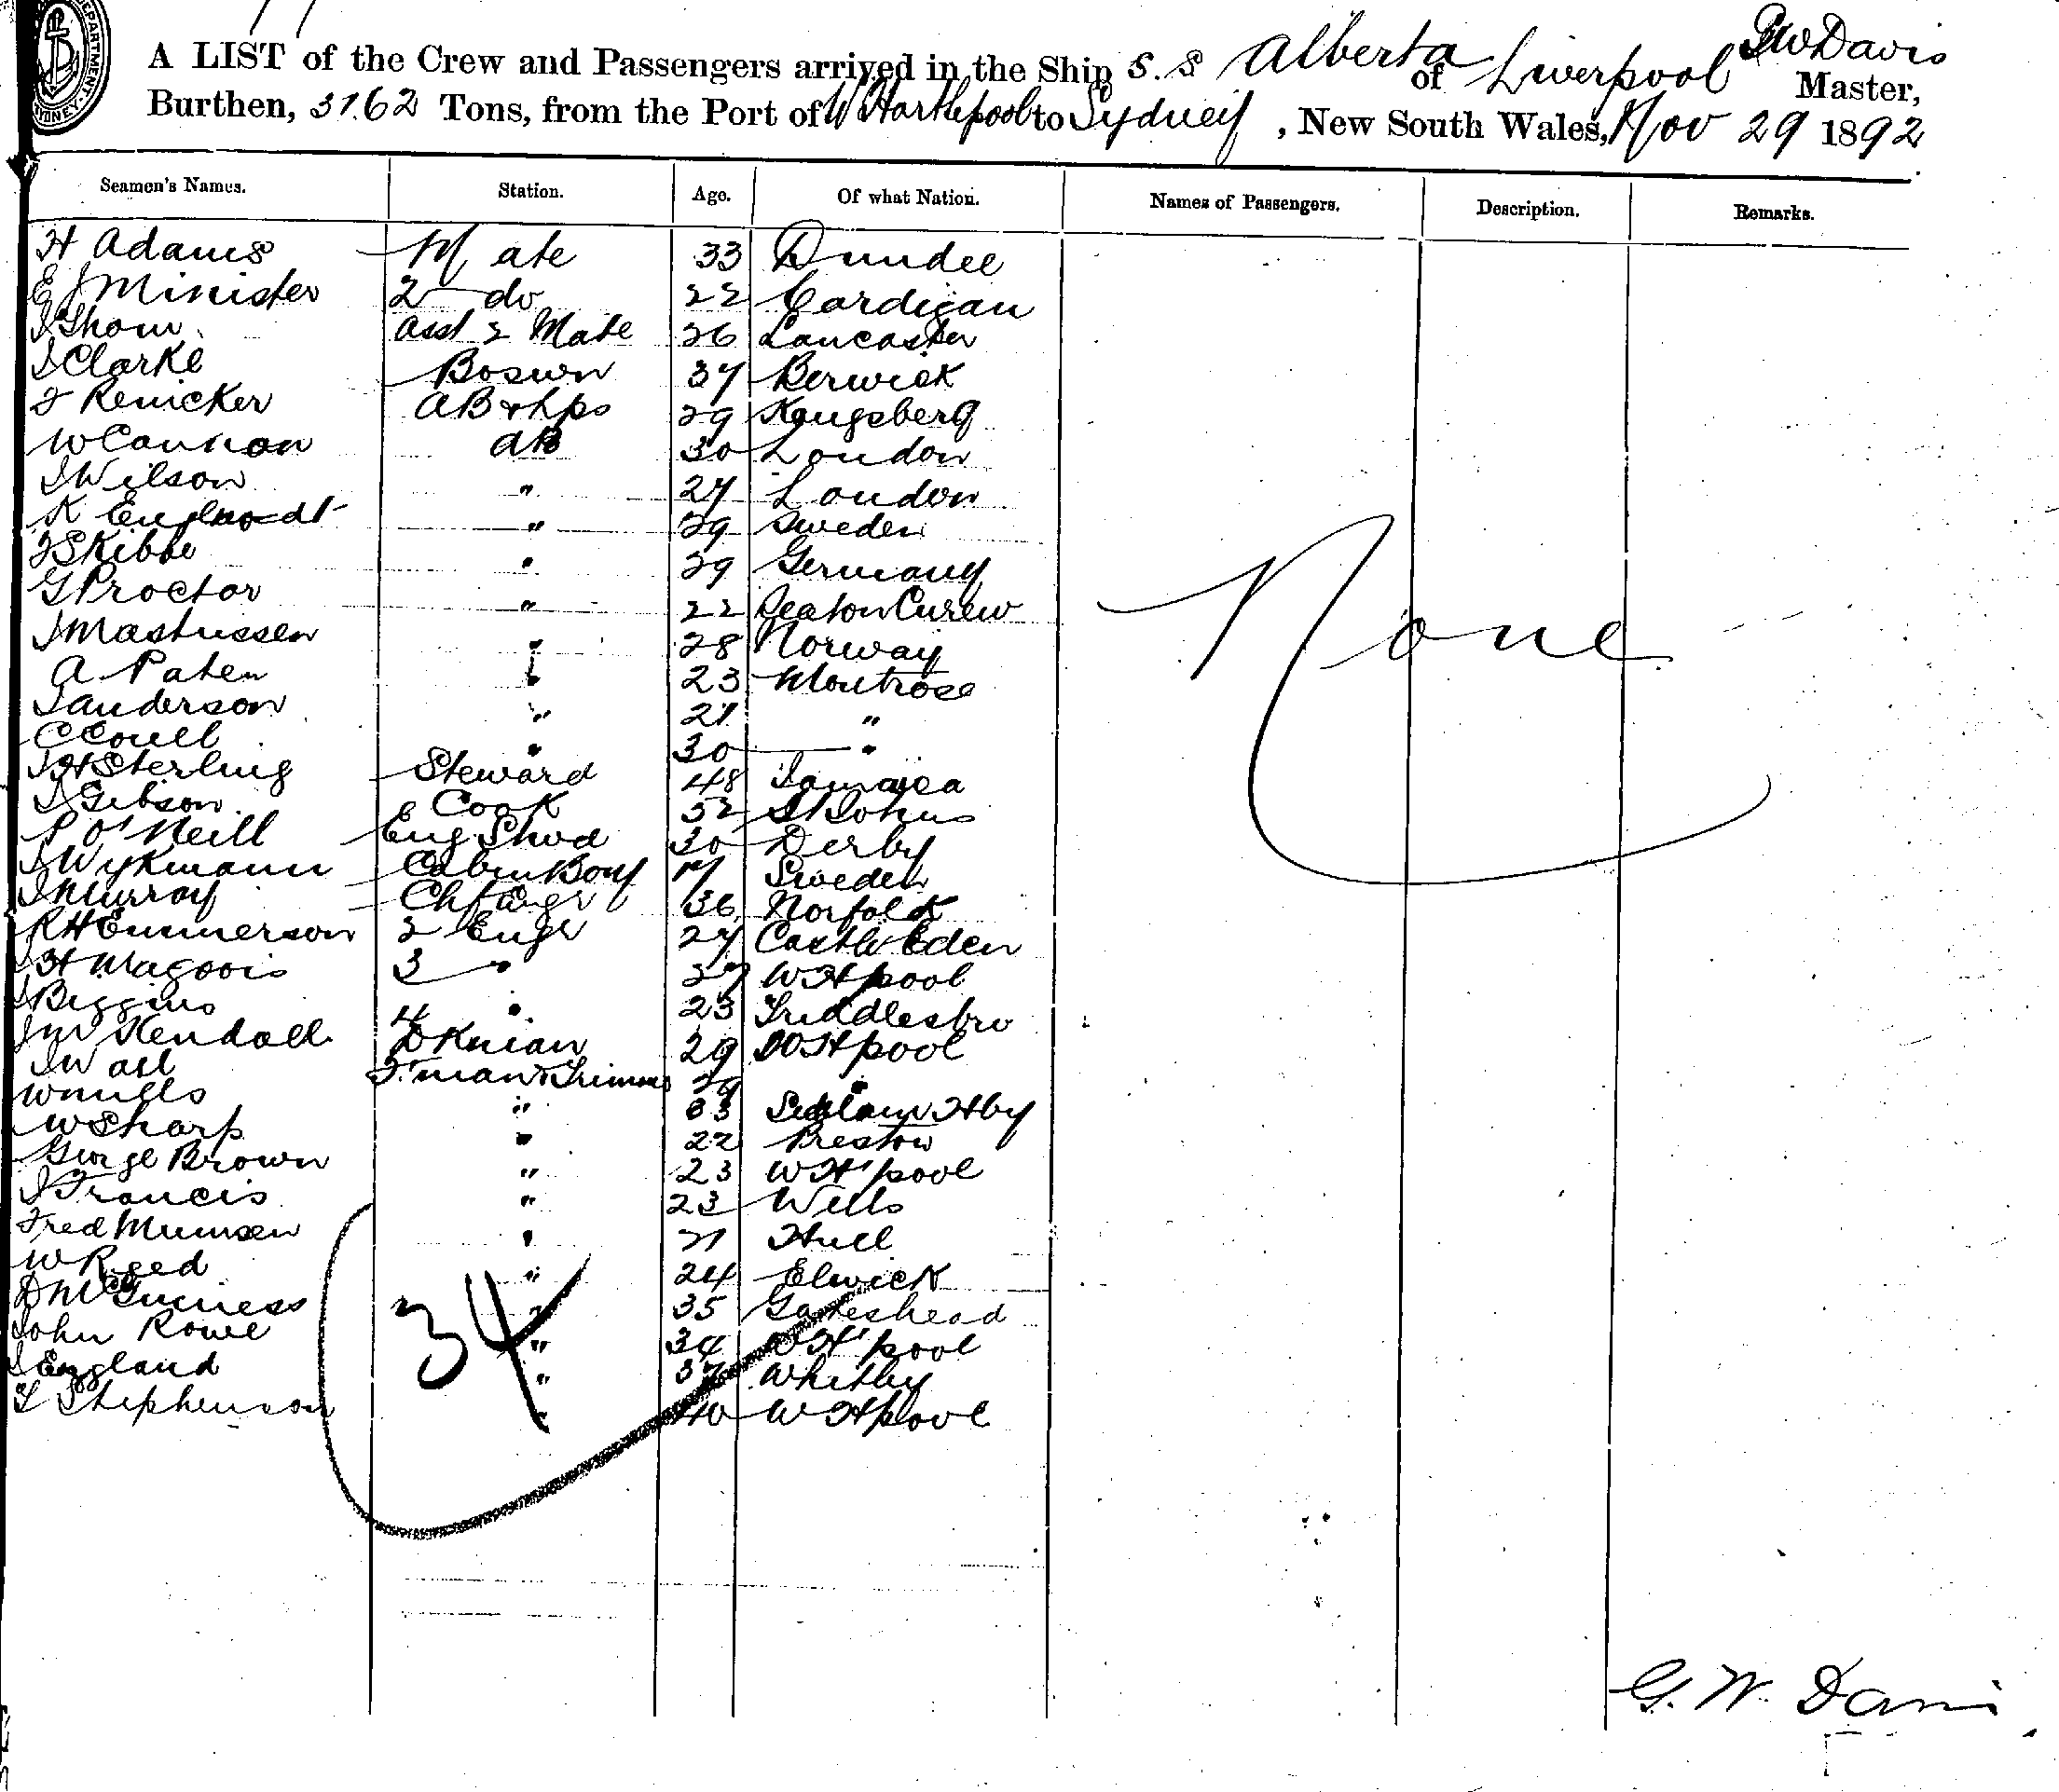 DEPARTMENT
A LIST of the Crew and Passengers arrived in the Ship S.S Alberta of Liverpool G W Davis Master,
Burthen, 3162 Tons, from the Port of W Hartlepool to Sydney, New South Wales, Nov 29 1892
Seamen's Names. Station. Age. Of what Nation. Names of Passengers. Description. Remarks.
H Adams Mate 33 Dundee
E J Minister 2 do 22 Cardigan
J Thom Asst 2 Mate 26 Lancaster
J Clarke Boswn 37 Berwick
F Renicker AB & Lps 29 Kongsberg
W Cannon AB 30 London
J Wilson " 27 London
K " 29 Sweden
F Skibbe " 29 Germany
G Proctor " 22 Seaton Curew
J Mastussen " 28 Norway
A Paten " 23 Montrose
J anderson " 27 "
C Coull " 30 "
J H Sterling Steward 48 Jamaica
J Gibson Cook 52 St Johns
P O'Neill Eng Stwd 30 Derby
J Wykmann Cabin Boy 17 Sweden
J Murray Ch Engr 36 Norfolk
R H Emmerson 2 Engr 27 Castle Eden
J H 3 " 27 W H pool
J Biggins 4 " 23
J W Kendall DKman 29 W H pool
J Wall F.man & Trimmer 29 "
W Mills " 33
W Sharp " 22 Preston
George Brown " 23 W H'pool
J Francis " 23 Wells
Fred Mumsen " 21 Hull
W Reed " 24 Elwick
D McGuiness " 35 Gateshead
John Rowe " 34 W H'pool
J England " 37 Whitby
T Stephenson " 40 W H pool
None
34
G. W. Davis